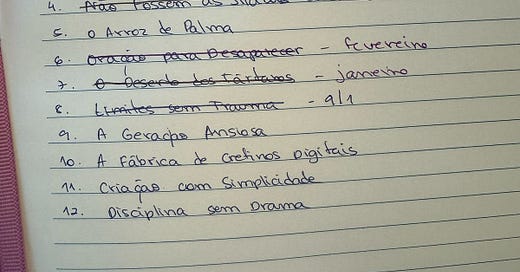 4. Não fossem as
5. O Arroz de Palma
6. Oração para Desaparecer - fevereiro
7. O Deserto dos Tártaros - janeiro
8. Limites sem Trauma - 9/1
9. A Geração Ansiosa
10. A Fábrica de Cretinos Digitais
11. Criação com Simplicidade
12. Disciplina sem Drama